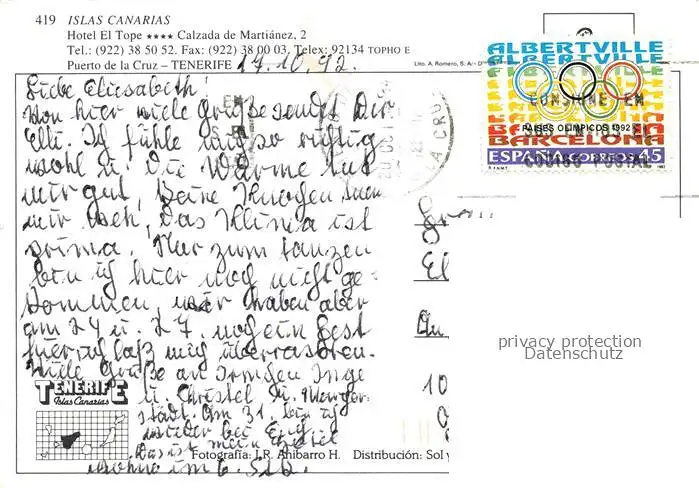 419 ISLAS CANARIAS
Hotel El Tope ★★★★ Calzada de Martiánez, 2
Tel.: (922) 38 50 52. Fax: (922) 38 00 03. Telex: 92134 TOPHO E
Puerto de la Cruz – TENERIFE
17.10.92.
Lito. A. Romero, S. A.
ALBERTVILLE
PAISES OLIMPICOS 1992
BARCELONA
ESPAÑA CORREOS 45
CODIGO POSTAL
LA CRUZ
Liebe Elisabeth!
Von hier viele Grüße sendet Dir
Elli. Ich fühle mich so richtig
wohl u. die Wärme tut
mir gut, keine Knochen tun
mir weh, das Klima ist
prima. Nur zum tanzen
bin ich hier noch nicht ge-
kommen, wir haben aber
am 24 u. 27. noch ein Fest
hier ich laß mich überraschen.
Viele Grüße an Inge
u. Christel
städt. Am 31. bin ich
wieder bei
Das ist mein
wohne im 6. Stck.
El
10
TENERIFE
Islas Canarias
Fotografía: J.R. Anibarro H. Distribución: Sol y
privacy protection
Datenschutz